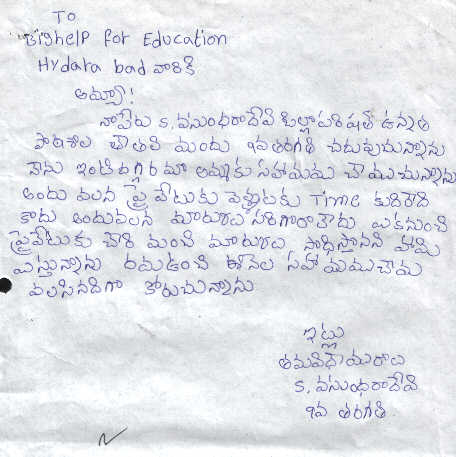 TO
Bighelp for Education
Hydara bad వారికి
అమ్మా!
నాపేరు S, వసుంధరాదేవి జిల్లాపరిషత్ ఉన్నత
పాఠశాల మందు 9వతరగతి చదువుచున్నాను
నేను ఇంటిదగ్గర మా అమ్మకు సహాయము చేయుచున్నాను
అందు వలన ప్రైవేటుకు వెళ్ళుటకు Time కుదరడం
లేదు అందువలన మార్కులు సరిగారాలేదు ఇకనుంచి
ప్రైవేటుకు చేరి మంచి మార్కులు సాధిస్తానని హామి
ఇస్తున్నాను దయఉంచి ఈనెల సహాయముచేయ
వలసినదిగా కోరుచున్నాను
ఇట్లు
తమవిధేయురాలు
S, వసుంధరాదేవి
9వ తరగతి.